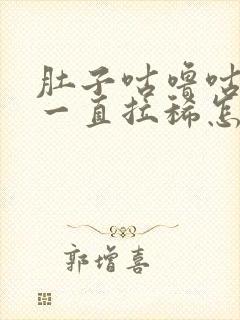 肚子咕噜咕
一直拉稀怎
郭增喜